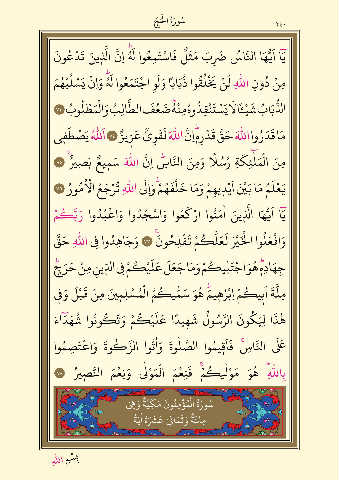 سُورَةُ الْحَجِّ
٣٤٠
يَٓا اَيُّهَا النَّاسُ ضُرِبَ مَثَلٌ فَاسْتَمِعُوا لَهُۜ اِنَّ الَّذ۪ينَ تَدْعُونَ
مِنْ دُونِ اللّٰهِ لَنْ يَخْلُقُوا ذُبَابًا وَلَوِ اجْتَمَعُوا لَهُۜ وَاِنْ يَسْلُبْهُمُ
الذُّبَابُ شَيْـًٔا لَا يَسْتَنْقِذُوهُ مِنْهُۜ ضَعُفَ الطَّالِبُ وَالْمَطْلُوبُ ٧٣
مَا قَدَرُوا اللّٰهَ حَقَّ قَدْرِه۪ۜ اِنَّ اللّٰهَ لَقَوِيٌّ عَز۪يزٌ ٧٤ اَللّٰهُ يَصْطَف۪ي
مِنَ الْمَلٰٓئِكَةِ رُسُلًا وَمِنَ النَّاسِۜ اِنَّ اللّٰهَ سَم۪يعٌ بَص۪يرٌۚ ٧٥
يَعْلَمُ مَا بَيْنَ اَيْد۪يهِمْ وَمَا خَلْفَهُمْۜ وَاِلَى اللّٰهِ تُرْجَعُ الْاُمُورُ ٧٦
يَٓا اَيُّهَا الَّذ۪ينَ اٰمَنُوا ارْكَعُوا وَاسْجُدُوا وَاعْبُدُوا رَبَّكُمْ
وَافْعَلُوا الْخَيْرَ لَعَلَّكُمْ تُفْلِحُونَۚ ٧٧ وَجَاهِدُوا فِي اللّٰهِ حَقَّ
جِهَادِه۪ۜ هُوَ اجْتَبٰيكُمْ وَمَا جَعَلَ عَلَيْكُمْ فِي الدّ۪ينِ مِنْ حَرَجٍۜ
مِلَّةَ اَب۪يكُمْ اِبْرٰه۪يمَۜ هُوَ سَمّٰيكُمُ الْمُسْلِم۪ينَ مِنْ قَبْلُ وَف۪ي
هٰذَا لِيَكُونَ الرَّسُولُ شَه۪يدًا عَلَيْكُمْ وَتَكُونُوا شُهَدَٓاءَ
عَلَى النَّاسِۚ فَاَق۪يمُوا الصَّلٰوةَ وَاٰتُوا الزَّكٰوةَ وَاعْتَصِمُوا
بِاللّٰهِۜ هُوَ مَوْلٰيكُمْۚ فَنِعْمَ الْمَوْلٰى وَنِعْمَ النَّص۪يرُ ٧٨
سُورَةُ الْمُؤْمِنُونَ مَكِّيَّةٌ وَهِيَ
مِائَةٌ وَثَمَانِيَ عَشْرَةَ اٰيَةً
بِسْمِ اللّٰهِ